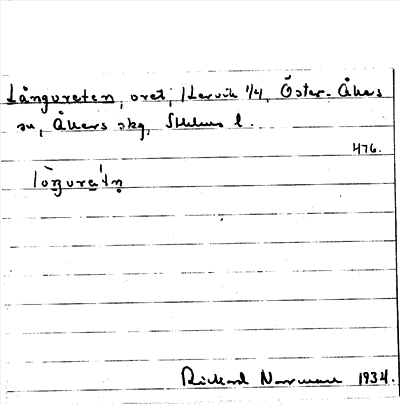 Långvreten, vret, Hervik 1/4, Öster-Åkers
sn, Åkers skg, Sthlms l.
476.
Rickard Norrman 1934.